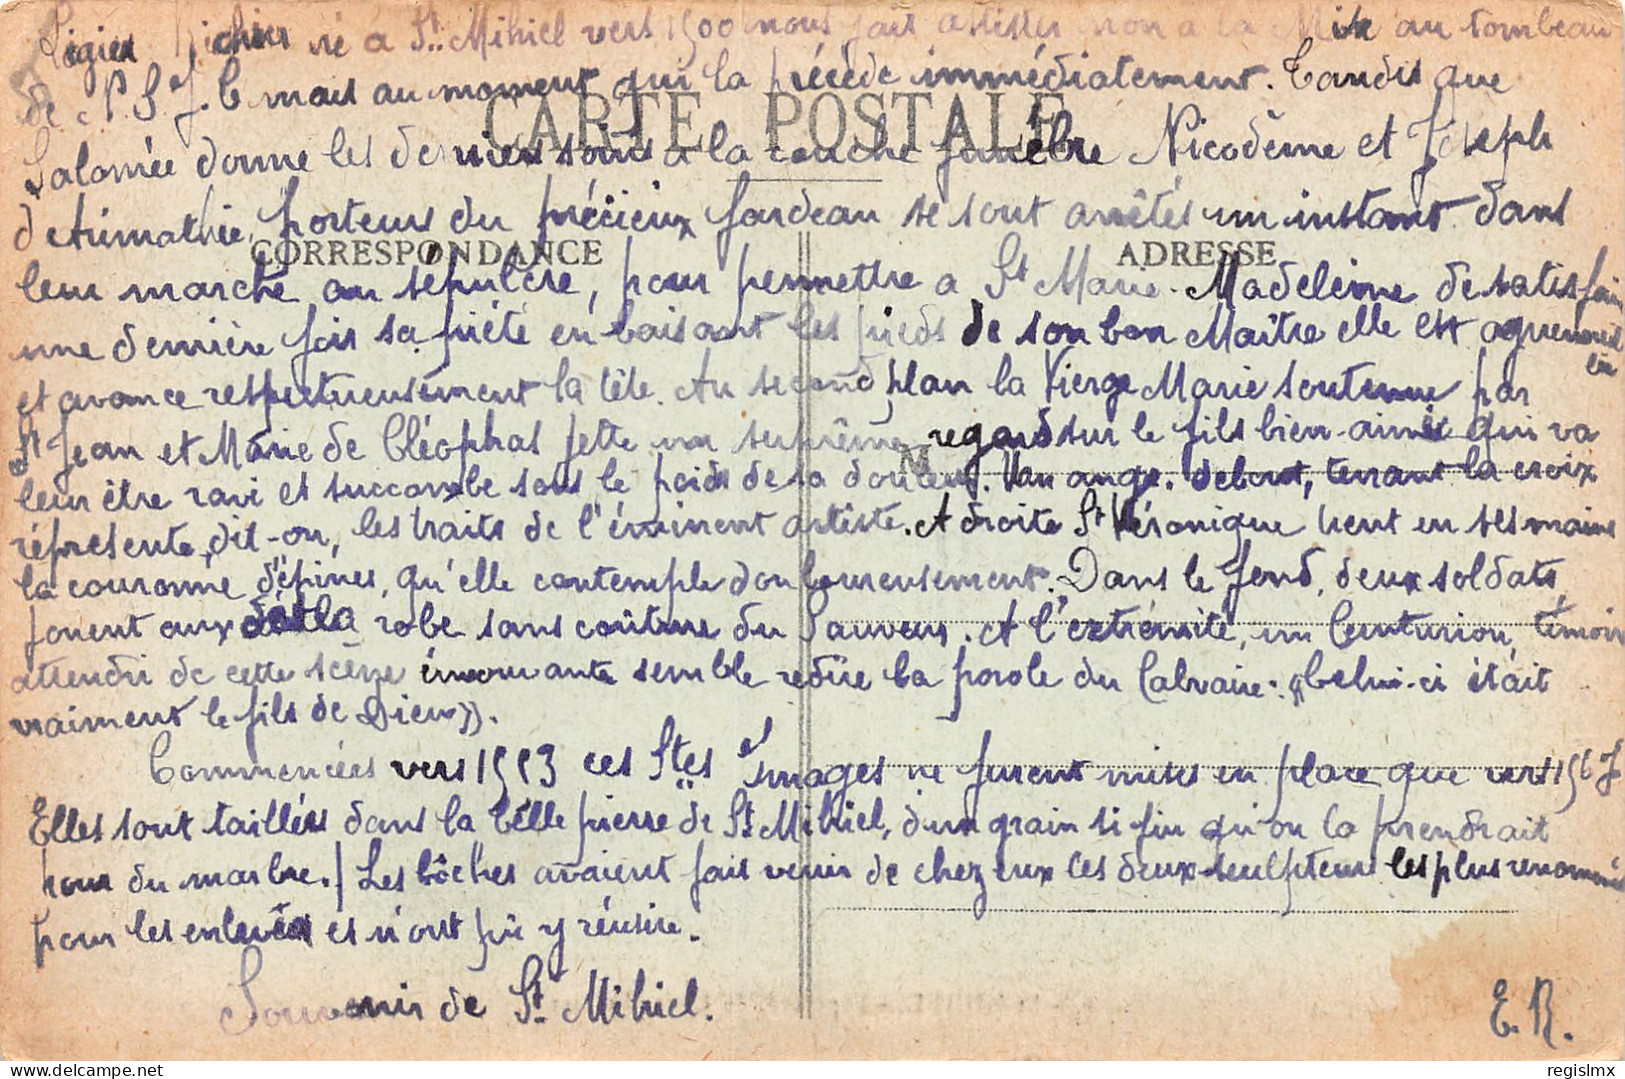 Ligier Richier né à St. Mihiel vers 1500 nous fait assister non à la Mise au tombeau
de N. S. J. C mais au moment qui la précède immédiatement. Tandis que
CARTE POSTALE
Salomée donne les derniers soins à la couche funèbre Nicodème et Joseph
d'Arimathie, porteurs du précieux fardeau se sont arrêtés un instant dans
CORRESPONDANCE ADRESSE
leur marche au sepulcre, pour permettre a St Marie-Madeleine de satisfair
une dernière fois sa piété en baisant les pieds de son bon Maître elle est agenouil
lée
et avance respectueusement la tête. Au second plan la Vierge Marie soutenue par
St Jean et Marie de Cléophas jette un suprême regard sur le fils bien-aimé qui va
M
leur être ravi et succombe sous le poids de sa douleur. Un ange. debout, tenant la croix
réprésente, dit-on, les traits de l'éminent artiste. A droite St Véronique tient en ses mains
la couronne d'épines, qu'elle contemple douloureusement. Dans le fond, deux soldats,
jouent aux dés la robe sans couture du Sauveur. A l'extrémité, un Centurion, témoin
attendri de cette scène émouvante semble redire la parole du Calvaire: «Celui-ci était
vraiment le fils de Dieu».
Commencées vers 1553 ces Stes Images ne furent mises en place que vers 1567
Elles sont taillées dans la belle pierre de St Mihiel, d'un grain si fin qu'on la prendrait
pour du marbre./ Les bôches avaient fait venir de chez eux les deux sculpteurs les plus renommés
pour les enlever et n'ont pu y réussir.
Souvenir de St. Mihiel.
E. R.
regislmx
© delcampe.net